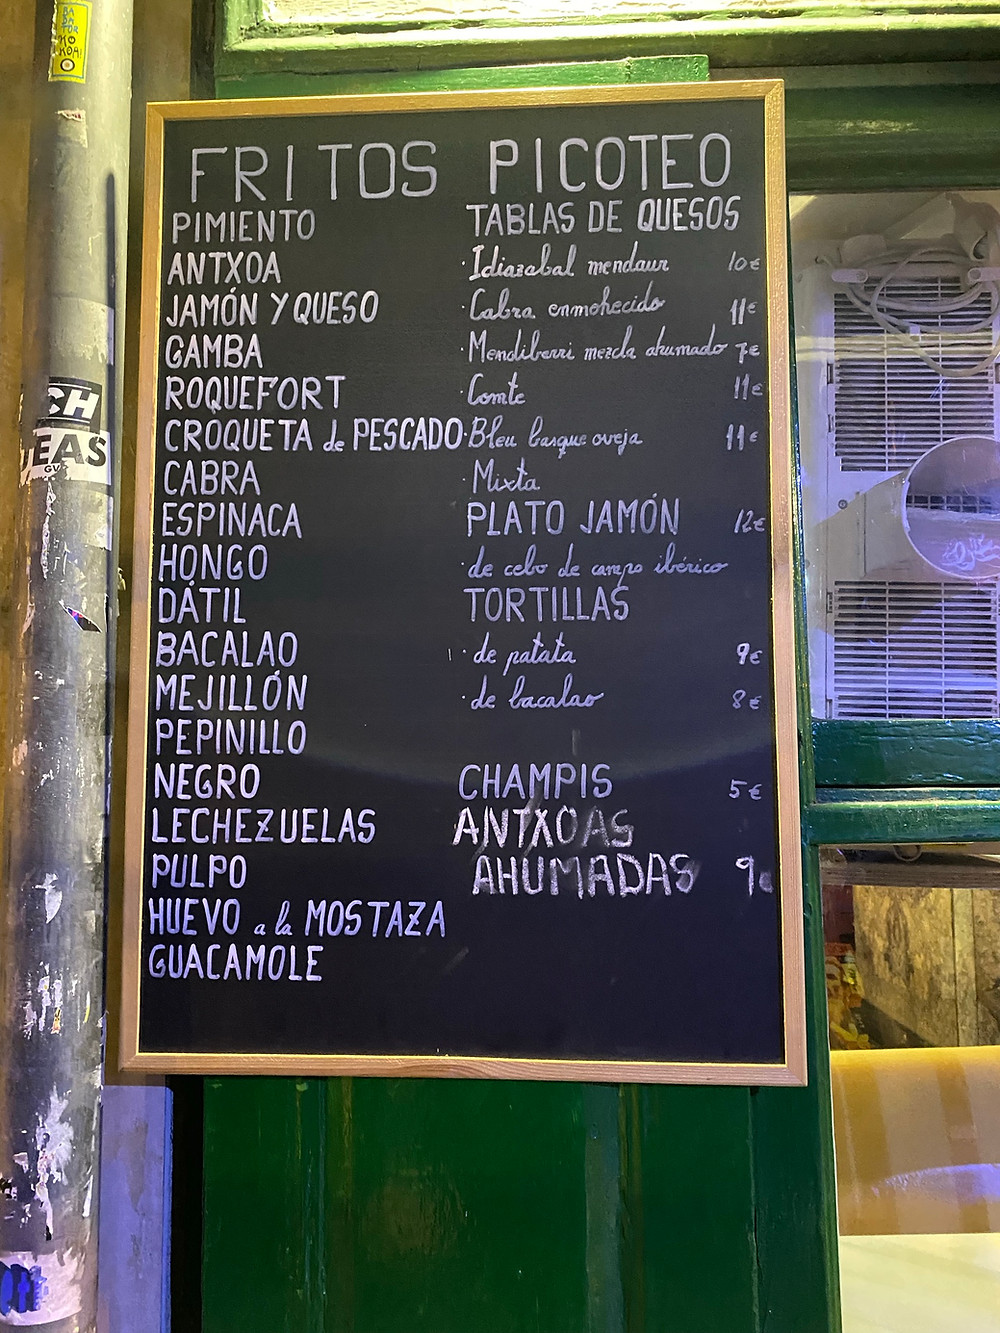 BA
BA
TOR
KO
KOA!
CH
JEAS
GV
FRITOS
PIMIENTO
ANTXOA
JAMÓN Y QUESO
GAMBA
ROQUEFORT
CROQUETA de PESCADO
CABRA
ESPINACA
HONGO
DÁTIL
BACALAO
MEJILLÓN
PEPINILLO
NEGRO
LECHEZUELAS
PULPO
HUEVO a la MOSTAZA
GUACAMOLE
PICOTEO
TABLAS DE QUESOS
· Idiazabal mendaur 10€
· Cabra enmohecido 11€
· Mendiberri mezcla ahumado 7€
· Comte 11€
· Bleu basque oveja 11€
· Mixta
PLATO JAMÓN 12€
· de cebo de campo ibérico
TORTILLAS
· de patata 9€
· de bacalao 8€
CHAMPIS 5€
ANTXOAS
AHUMADAS 9€